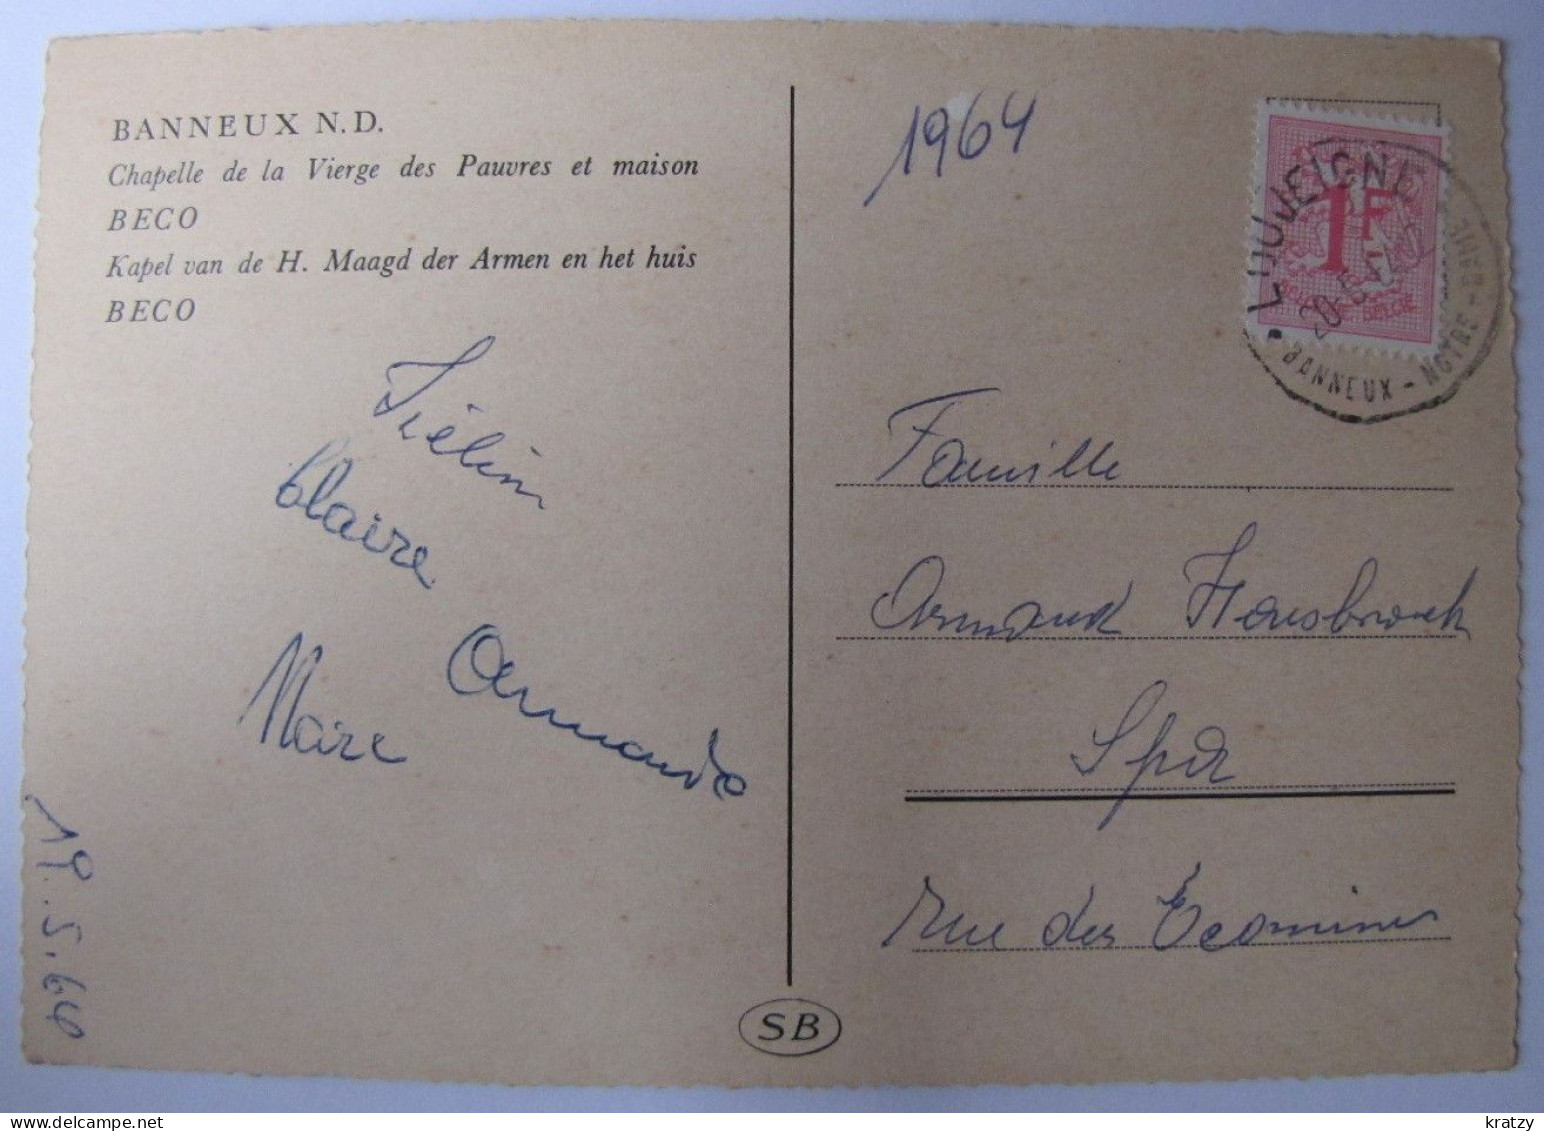 BANNEUX N.D.
Chapelle de la Vierge des Pauvres et maison
BECO
Kapel van de H. Maagd der Armen en het huis
BECO
1964
1F
BELGIE
LOUVEIGNE
20-5
BANNEUX - NOTRE - DAME
Claire
Armande
Marc
Famille
Armand
Spa
rue des
19.5.64
SB
kratzy